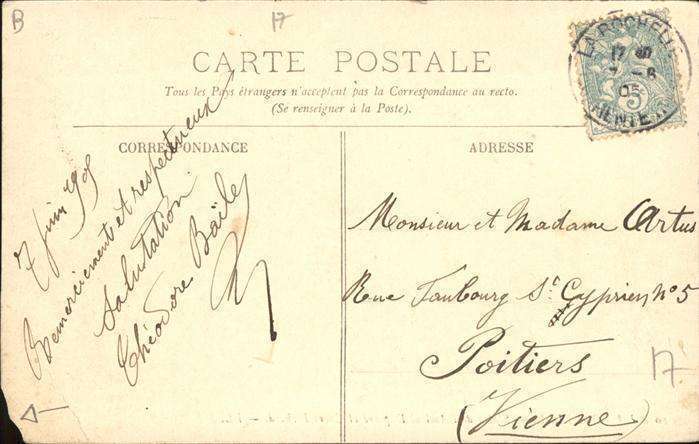 B
17
CARTE POSTALE
Tous les Pays étrangers n'acceptent pas la Correspondance au recto.
(Se renseigner à la Poste).
LA ROCHELLE
17
05
CORRESPONDANCE
7 juin
Remerciement et respectueux
salutation
Théodore
ADRESSE
Monsieur et Madame Artus
Rue Faubourg St Cyprien n° 5
Poitiers
(Vienne)
17